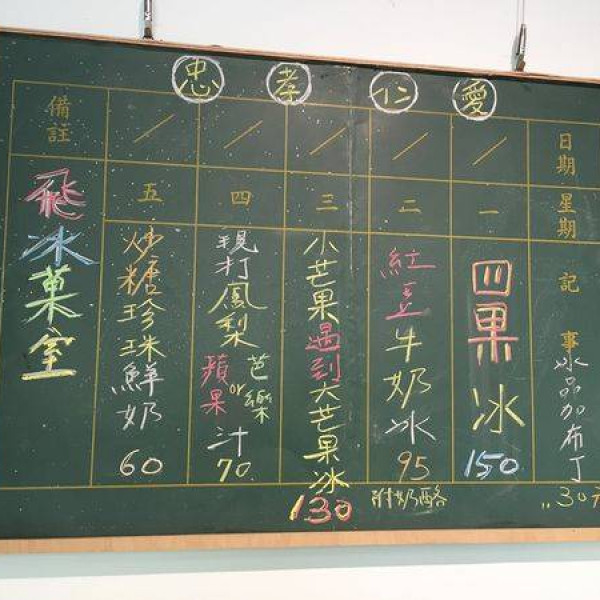 忠孝仁愛
日期
星期
記事
冰品加布丁
..30元
／
一
四果冰
150
／
二
紅豆牛奶冰
95
附奶酪
／
三
小芒果遇到大芒果冰
130
／
四
現打鳳梨
蘋果or芭樂
汁
70
／
五
炒糖珍珠鮮奶
60
備註
飛冰菓室